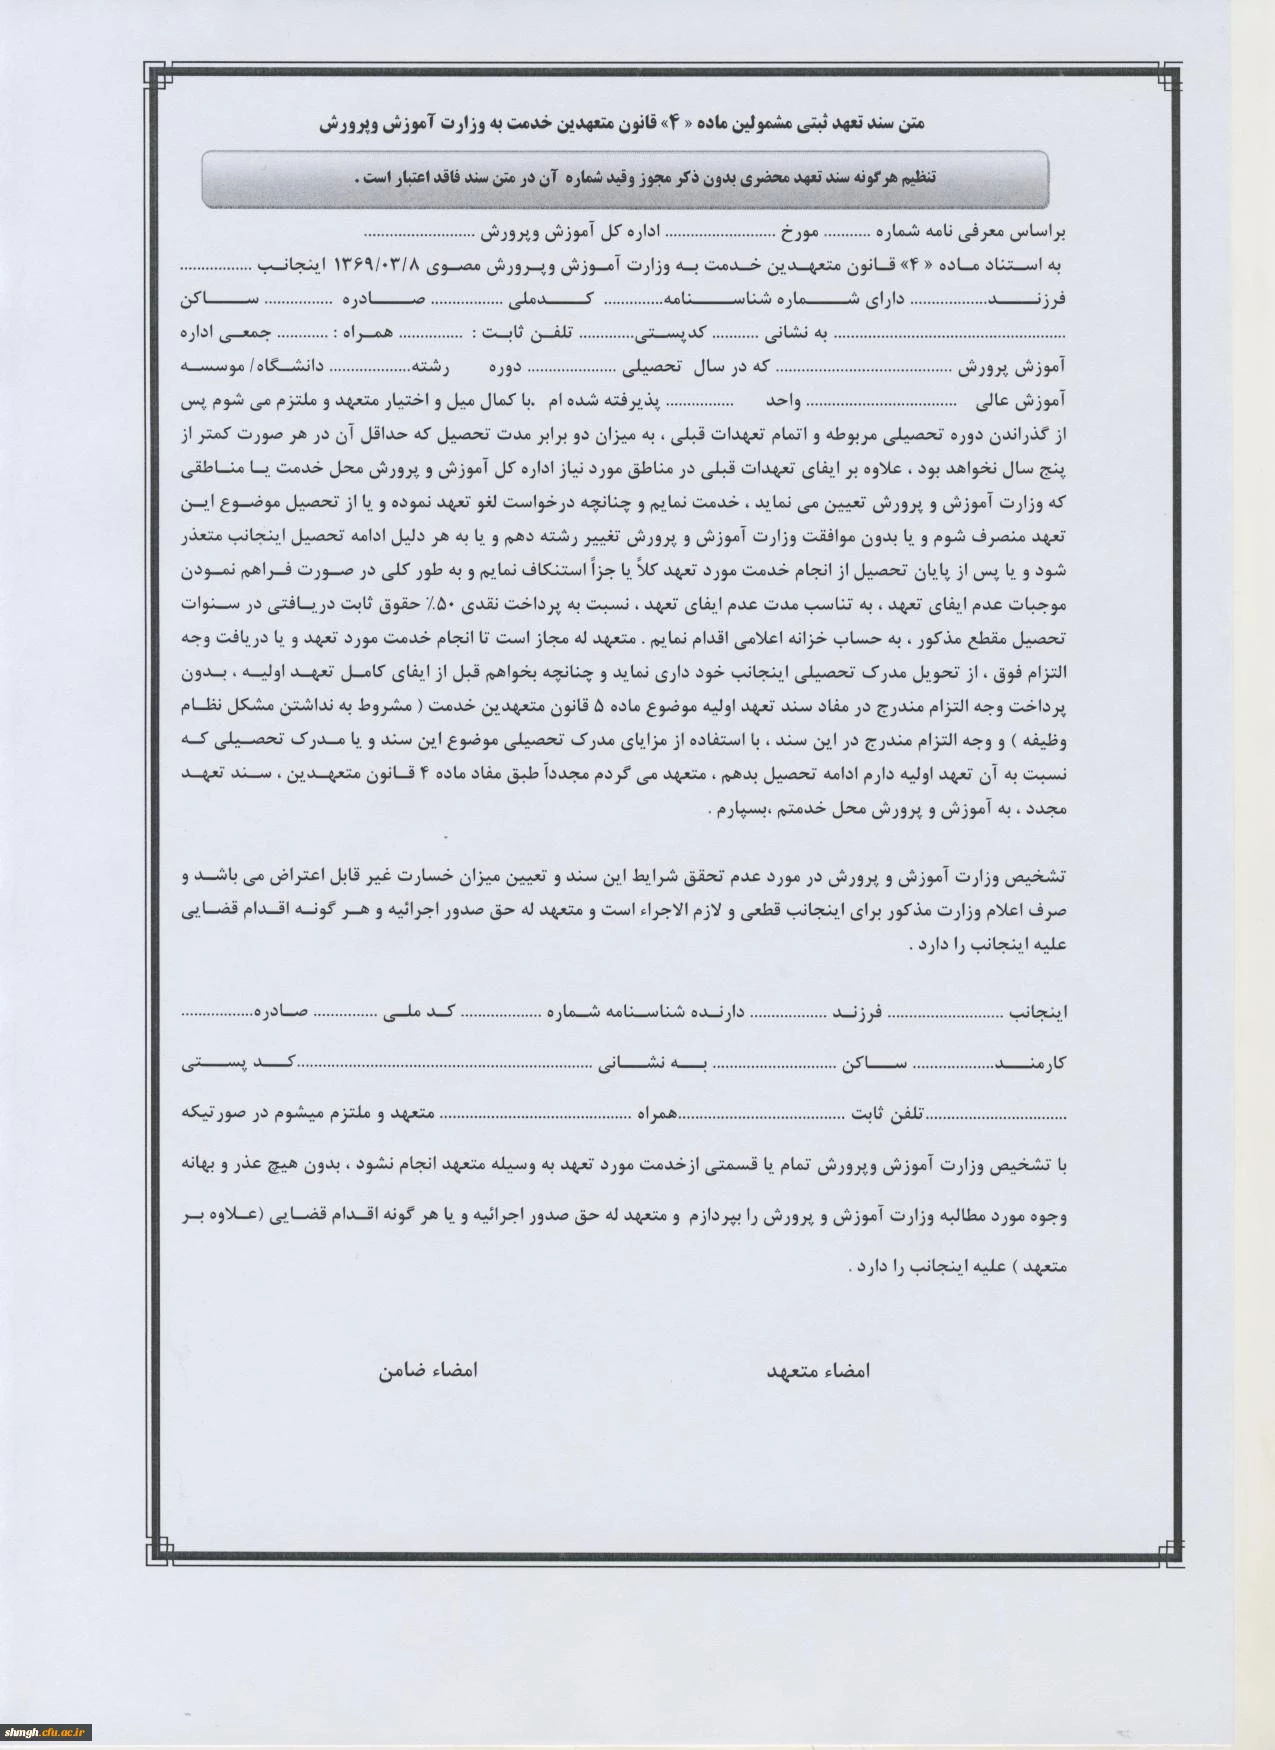 متن سند تعهد ثبتی مشمولین ماده « ۴» قانون متعهدین خدمت به وزارت آموزش وپرورش
تنظیم هرگونه سند تعهد محضری بدون ذکر مجوز وقید شماره آن در متن سند فاقد اعتبار است .
براساس معرفی نامه شماره ........... مورخ .......................... اداره کل آموزش وپرورش ..........................
به استناد ماده « ۴» قانون متعهدین خدمت به وزارت آموزش وپرورش مصوی ۱۳۶۹/۰۳/۸ اینجانب .................
فرزند.................. دارای شماره شناسنامه.............. کدملی ................. صادره ................ ساکن
...................................................... به نشانی ........... کدپستی............. تلفن ثابت : ............... همراه : ............ جمعی اداره
آموزش پرورش ......................................... که در سال تحصیلی ..................... دوره رشته................... دانشگاه/ موسسه
آموزش عالی ................................... واحد ................ پذیرفته شده ام .با کمال میل و اختیار متعهد و ملتزم می شوم پس
از گذراندن دوره تحصیلی مربوطه و اتمام تعهدات قبلی ، به میزان دو برابر مدت تحصیل که حداقل آن در هر صورت کمتر از
پنج سال نخواهد بود ، علاوه بر ایفای تعهدات قبلی در مناطق مورد نیاز اداره کل آموزش و پرورش محل خدمت یا مناطقی
که وزارت آموزش و پرورش تعیین می نماید ، خدمت نمایم و چنانچه درخواست لغو تعهد نموده و یا از تحصیل موضوع این
تعهد منصرف شوم و یا بدون موافقت وزارت آموزش و پرورش تغییر رشته دهم و یا به هر دلیل ادامه تحصیل اینجانب متعذر
شود و یا پس از پایان تحصیل از انجام خدمت مورد تعهد کلاً یا جزاً استنکاف نمایم و به طور کلی در صورت فراهم نمودن
موجبات عدم ایفای تعهد ، به تناسب مدت عدم ایفای تعهد ، نسبت به پرداخت نقدی ۵۰٪ حقوق ثابت دریافتی در سنوات
تحصیل مقطع مذکور ، به حساب خزانه اعلامی اقدام نمایم . متعهد له مجاز است تا انجام خدمت مورد تعهد و یا دریافت وجه
التزام فوق ، از تحویل مدرک تحصیلی اینجانب خود داری نماید و چنانچه بخواهم قبل از ایفای کامل تعهد اولیه ، بدون
پرداخت وجه التزام مندرج در مفاد سند تعهد اولیه موضوع ماده ۵ قانون متعهدین خدمت ( مشروط به نداشتن مشکل نظام
وظیفه ) و وجه التزام مندرج در این سند ، با استفاده از مزایای مدرک تحصیلی موضوع این سند و یا مدرک تحصیلی که
نسبت به آن تعهد اولیه دارم ادامه تحصیل بدهم ، متعهد می گردم مجدداً طبق مفاد ماده ۴ قانون متعهدین ، سند تعهد
مجدد ، به آموزش و پرورش محل خدمتم ،بسپارم .
تشخیص وزارت آموزش و پرورش در مورد عدم تحقق شرایط این سند و تعیین میزان خسارت غیر قابل اعتراض می باشد و
صرف اعلام وزارت مذکور برای اینجانب قطعی و لازم الاجراء است و متعهد له حق صدور اجرائیه و هر گونه اقدام قضایی
علیه اینجانب را دارد .
اینجانب ........................... فرزند .................. دارنده شناسنامه شماره ................... کد ملی ............... صادره.................
کارمند................... ساکن ............................. به نشانی .....................................................................کد پستی
.................................تلفن ثابت .......................................همراه ............................................. متعهد و ملتزم میشوم در صورتیکه
با تشخیص وزارت آموزش وپرورش تمام یا قسمتی ازخدمت مورد تعهد به وسیله متعهد انجام نشود ، بدون هیچ عذر و بهانه
وجوه مورد مطالبه وزارت آموزش و پرورش را بپردازم و متعهد له حق صدور اجرائیه و یا هر گونه اقدام قضایی (علاوه بر
متعهد ) علیه اینجانب را دارد .
امضاء متعهد امضاء ضامن
shmgh.cfu.ac.ir